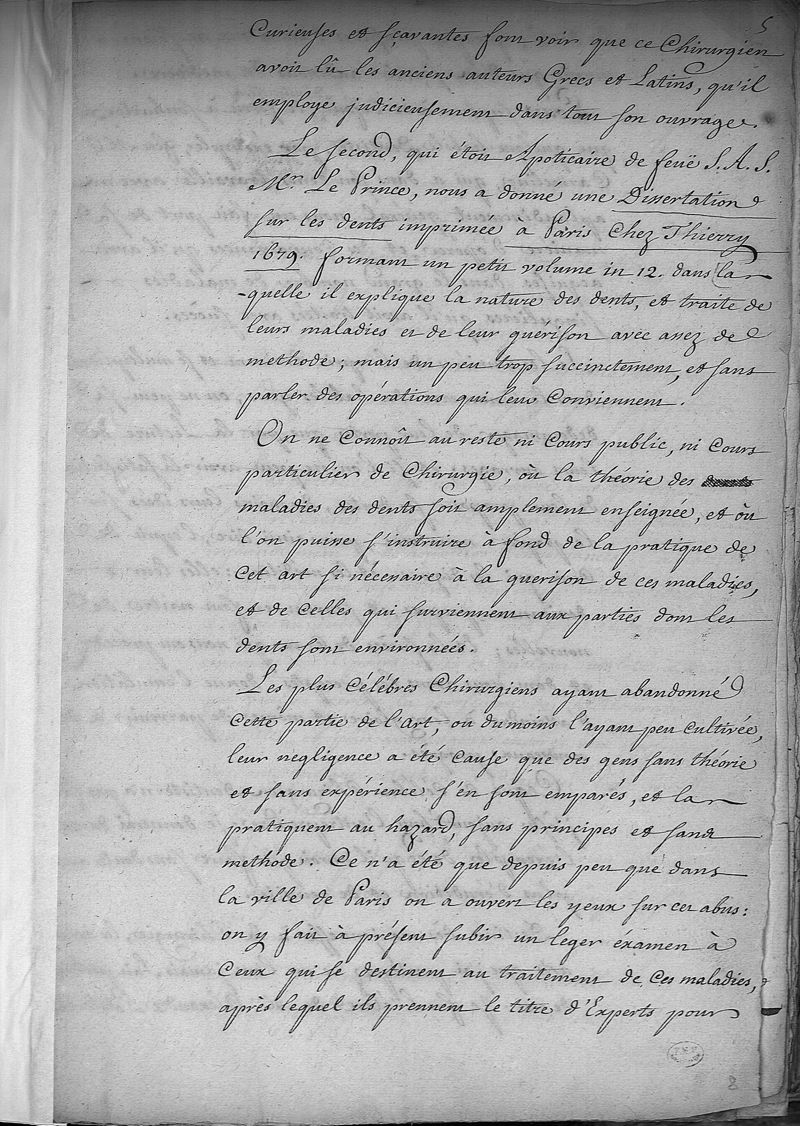 5
Curieuses et sçavantes font voir que ce Chirurgien
avoit lû les anciens auteurs Grecs et Latins, qu'il
employe judicieusement dans tout son ouvrage.
Le second, qui étoit Apoticaire de feuë S. A. S.
Mr. Le Prince, nous a donné une Dissertation
sur les dents imprimée à Paris Chez Thierry
1679. formant un petit volume in 12. dans la
-quelle il explique la nature des dents, et traite de
leurs maladies et de leur quérison avec assez de
methode; mais un peu trop succinctement, et sans
parler des opérations qui leur Conviennent.
On ne Connoît au reste ni Cours public, ni Cours
particulier de Chirurgie, où la théorie des
maladies des dents soit amplement enseignée, et où
l'on puisse s'instruire à fond de la pratique de
Cet art si nécessaire à la querison de ces maladies,
et de celles qui surviennent aux parties dont les
dents sont environnées.
Les plus Célébres Chirurgiens ayant abandonné
Cette partie de l'art, ou dumoins l'ayant peu cultivée,
leur negligence a été Cause que des gens sans théorie
et sans expérience s'en sont emparés, et la
pratiquent au hazard, sans principes et sans
methode. Ce n'a été que depuis peu que dans
la ville de Paris on a ouvert les yeux sur cet abus:
on y fait à présent subir un leger éxamen à
Ceux qui se destinent au traitement de Ces maladies,
après lequel ils prennent le titre d'Experts pour
8